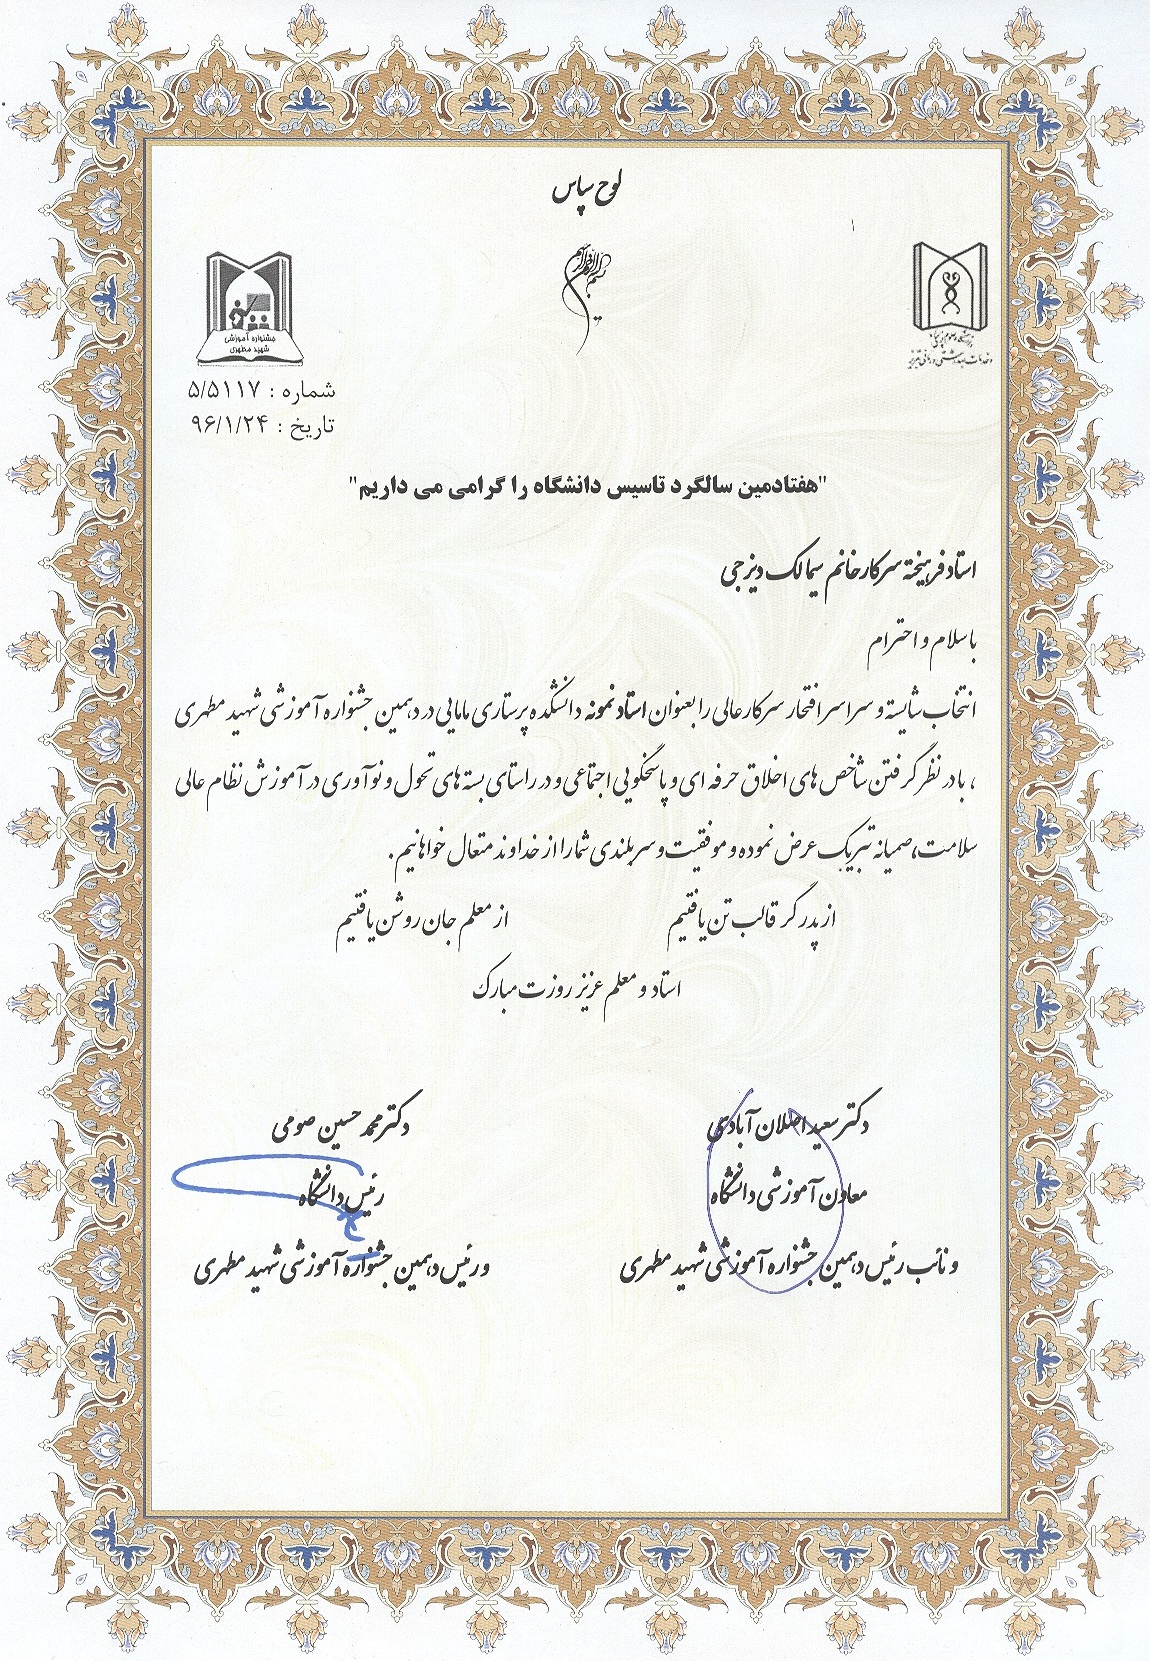 لوح سپاس
بسم الله الرحمن الرحیم
دانشگاه علوم پزشکی
و خدمات بهداشتی درمانی تبریز
جشنواره آموزشی
شهید مطهری
شماره : ۵/۵۱۱۷
تاریخ : ۹۶/۱/۲۴
"هفتادمین سالگرد تاسیس دانشگاه را گرامی می داریم"
استاد فرهیخته سرکار خانم سیما لک دیزجی
با سلام و احترام
انتخاب شایسته و سراسر افتخار سرکار عالی را بعنوان استاد نمونه دانشکده پرستاری مامایی در دهمین جشنواره آموزشی شهید مطهری
، با در نظر گرفتن شاخص های اخلاق حرفه ای و پاسخگویی اجتماعی و در راستای بسته های تحول و نوآوری در آموزش نظام عالی
سلامت، صمیمانه تبریک عرض نموده و موفقیت و سربلندی شما را از خداوند متعال خواهانیم.
از پدر گر قالب تن یافتیم از معلم جان روشن یافتیم
استاد و معلم عزیز روزت مبارک
دکتر سعید اصلان آبادی
معاون آموزشی دانشگاه
و نائب رئیس دهمین جشنواره آموزشی شهید مطهری
دکتر محمد حسین صومی
رئیس دانشگاه
و رئیس دهمین جشنواره آموزشی شهید مطهری